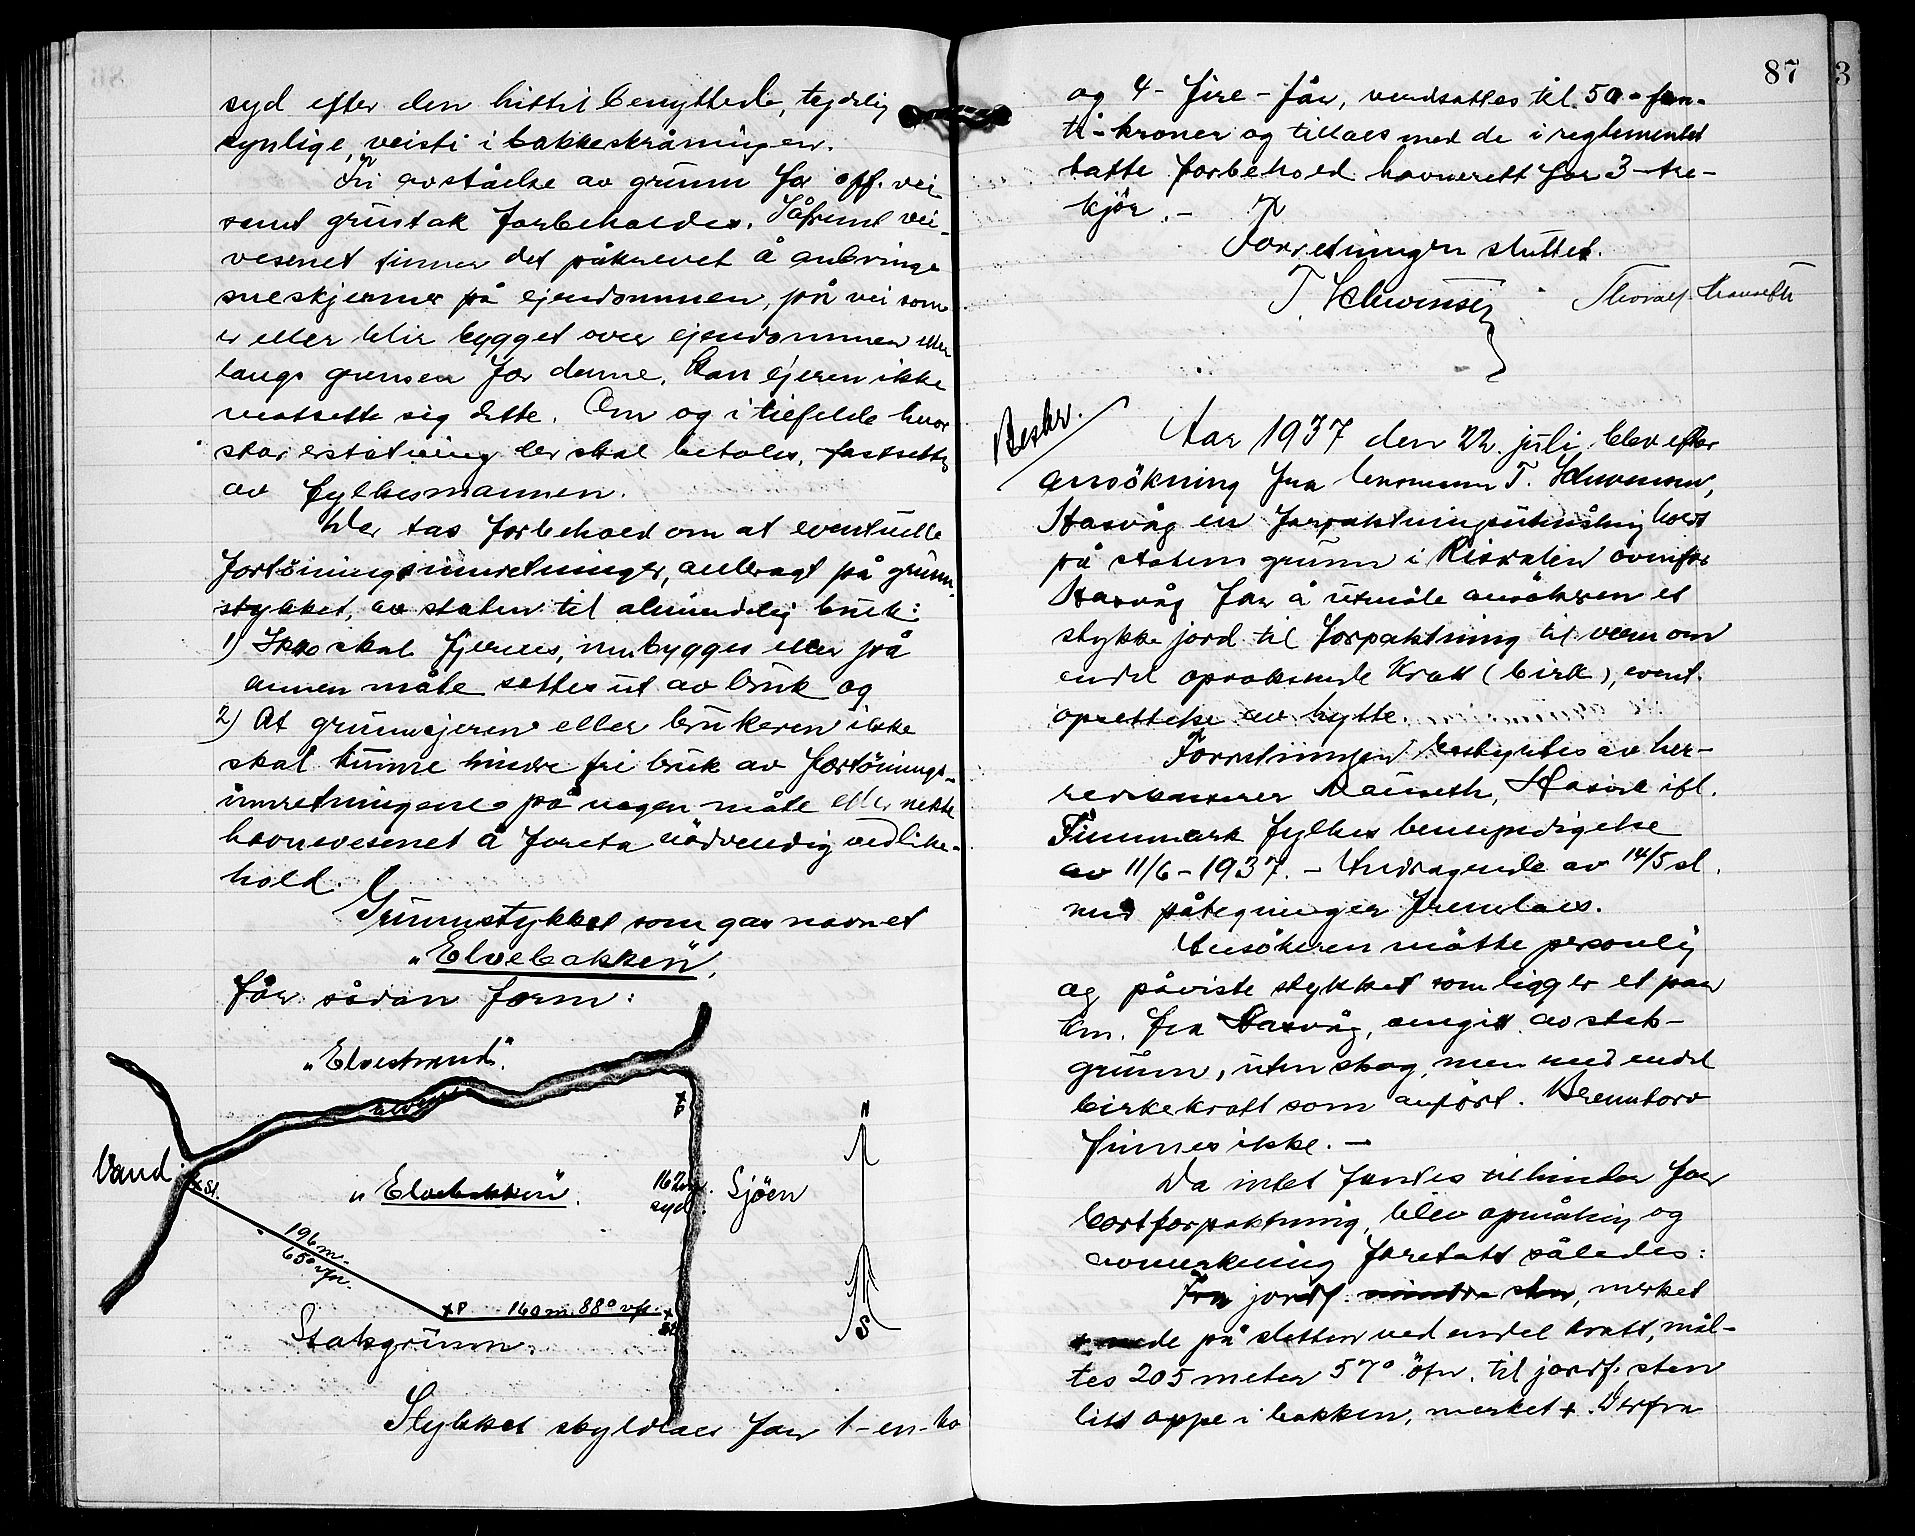 syd efter den hittil benyttede, tydelig
synlige, veisti i bakkeskråningen.
Fri avståelse av grunn for off. vei
samt grustak forbeholdes. Såfremt vei-
vesenet finner det påkrevet å anbringe
sneskjermer på ejendommen, på vei som
er eller blir bygget over ejendommen eller
langs grensen for denne, kan ejeren ikke
motsette sig dette. Om og i tilfelde hvor
stor erstatning der skal betales, fastsettes
av fylkesmannen.
Der tas forbehold om at eventuelle
fortöiningsinnretninger, anbragt på grunn-
stykket, av staten til almindelig bruk:
1) Ikke skal fjernes, innbygges eller på
annen måte settes ut av bruk og
2) At grunnejeren eller brukeren ikke
skal kunne hindre fri bruk av fortöinings-
innretningene på nogen måte eller nekte
havnevesenet å foreta nödvendig vedlike-
hold.
Grunnstykket som gav navnet
"Elvebakken",
får sådan form:
"Elvestrand".
Elven
Vand
x St.
"Elvebakken".
x P
162 m.
syd
Sjöen
N
196 m.
65° vfn.
x P 160 m. 88° vfs. x St.
S
Statsgrunn.
Stykket skyldlaes for 1-en-ko
87
3
og 4- fire - får, verdsattes til 50- fem-
ti- kroner og tillaes med de i reglementet
tatte forbehold havnerett for 3-tre-
kjör.-
Forretningen sluttet.
T. Schwensen
Thoralf Mauseth
Beskr.
Aar 1937 den 22. juli blev efter
ansökning fra lensmann T. Schwensen,
Hasvåg en forpaktningsutmåling holdt
på statens grunn i Risdalen ovenfor
Hasvåg for å utmåle ansökeren et
stykke jord til forpaktning til vern om
endel opvoksende kratt (birk), event.
oprettelse av hytte.
Forretningen bestyrtes av her-
redskasserer Mauseth, Hasvik ifl.
Finnmark fylkes bemyndigelse
av 11/6-1937. - Andragende av 14/5 d.
med påtegninger fremlaes.
Ansökeren mötte personlig
og påviste stykket som ligger et par
km. fra Hasvåg, omgitt av stats-
grunn, uten skog, men med endel
birkekratt som anfört. Brenntorv
finnes ikke. -
Da intet fantes til hinder for
bortforpaktning, blev opmåling og
avmerkning foretatt således:
Fra jordf. mindre sten, merket
+ nede på sletten ved endel kratt, mål-
tes 205 meter 57° öfn. til jordf. sten
litt oppe i bakken, merket +. Derfra